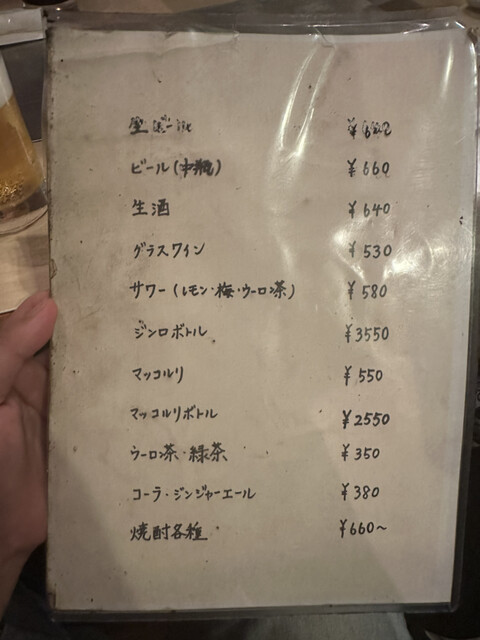 生ビール
ビール(中瓶) ¥660
生酒 ¥640
グラスワイン ¥530
サワー(レモン・梅・ウーロン茶) ¥580
ジンロボトル ¥3550
マッコルリ ¥550
マッコルリボトル ¥2550
ウーロン茶・緑茶 ¥350
コーラ・ジンジャーエール ¥380
焼酎各種 ¥660〜